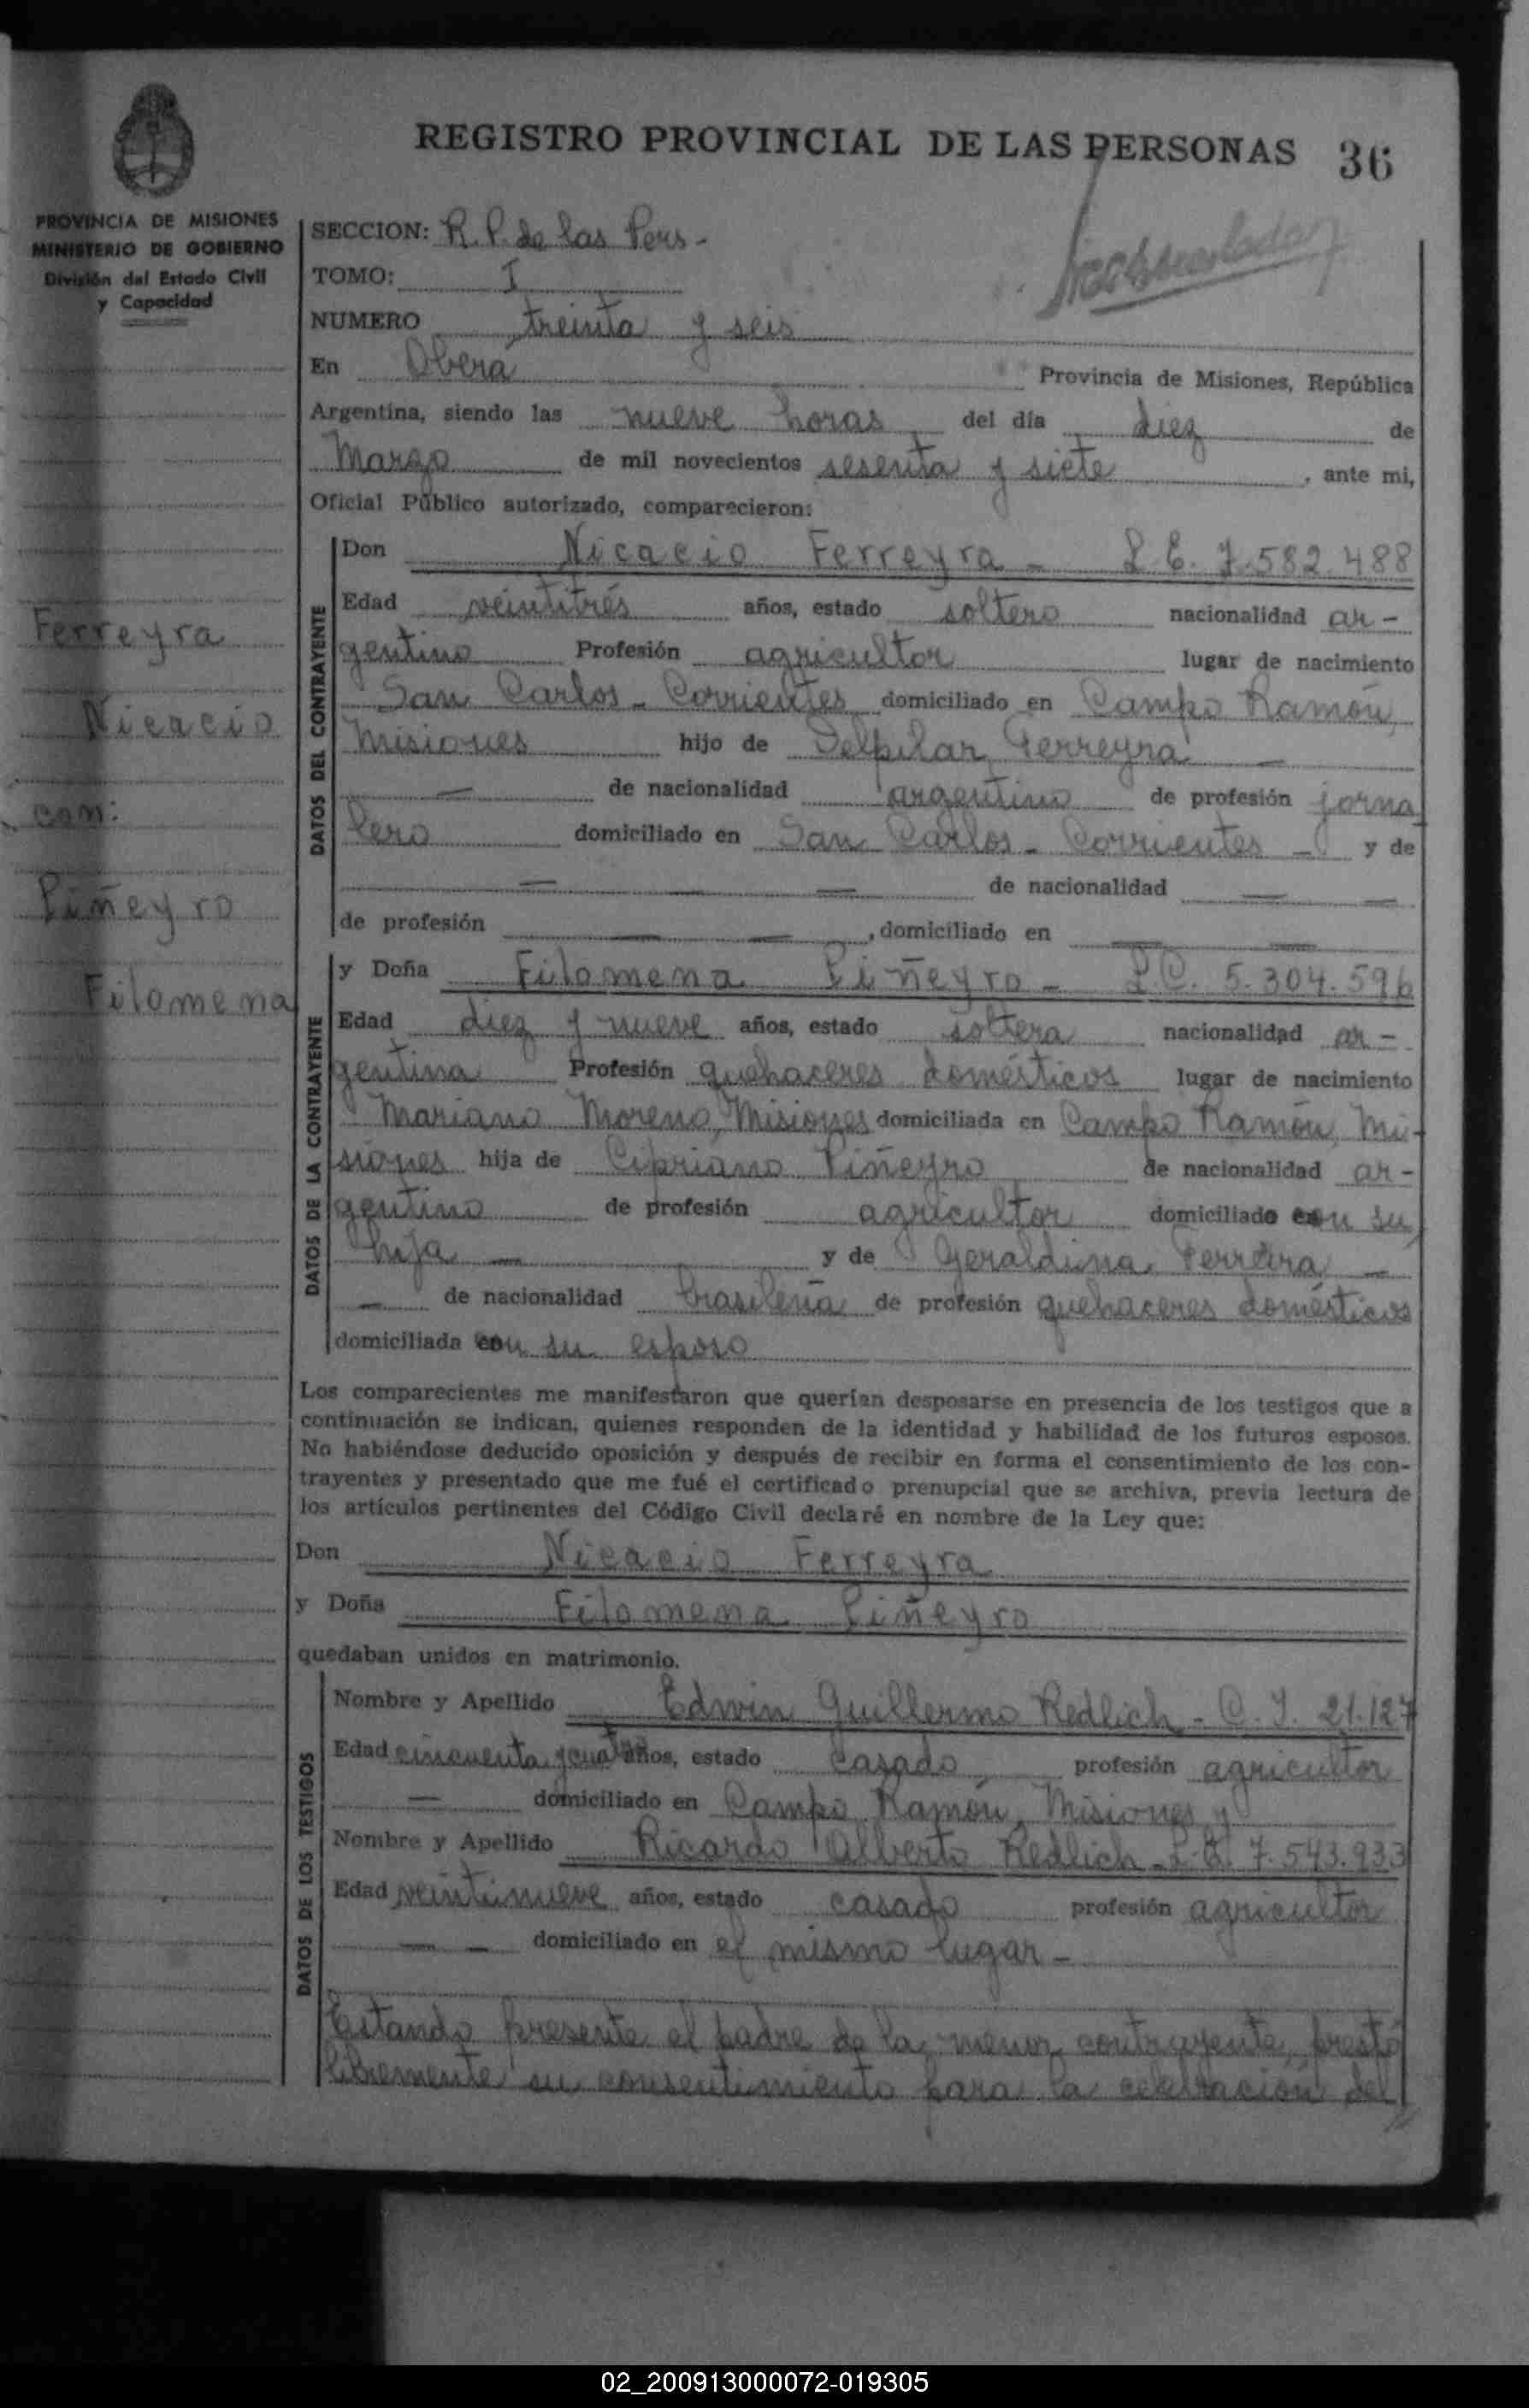 REGISTRO PROVINCIAL DE LAS PERSONAS 36
PROVINCIA DE MISIONES
MINISTERIO DE GOBIERNO
División del Estado Civil
y Capacidad
SECCION: R. P. de las Pers-
TOMO: I
NUMERO treinta y seis
En Oberá Provincia de Misiones, República
Argentina, siendo las nueve horas del día diez de
Marzo de mil novecientos sesenta y siete, ante mi,
Oficial Público autorizado, comparecieron:
Ferreyra
Nicacio
con:
Piñeyro
Filomena
DATOS DEL CONTRAYENTE
Don Nicacio Ferreyra - L.E. 7.582.488
Edad veintitrés años, estado soltero nacionalidad ar-
gentino Profesión agricultor lugar de nacimiento
San Carlos - Corrientes domiciliado en Campo Ramón,
Misiones hijo de Delpilar Ferreyra —
— de nacionalidad argentino de profesión jorna
lero domiciliado en San Carlos - Corrientes — y de
— — de nacionalidad — —
de profesión — —, domiciliado en — —
DATOS DE LA CONTRAYENTE
y Doña Filomena Piñeyro - L.C. 5.304.596
Edad diez y nueve años, estado soltera nacionalidad ar-
gentina Profesión quehaceres domésticos lugar de nacimiento
Mariano Moreno, Misiones domiciliada en Campo Ramón, Mi-
siones hija de Cipriano Piñeyro de nacionalidad ar-
gentino de profesión agricultor domiciliado con su
hija — y de Geraldina Ferreira —
— de nacionalidad brasileña de profesión quehaceres domésticos
domiciliada con su esposo
Los comparecientes me manifestaron que querían desposarse en presencia de los testigos que a
continuación se indican, quienes responden de la identidad y habilidad de los futuros esposos.
No habiéndose deducido oposición y después de recibir en forma el consentimiento de los con-
trayentes y presentado que me fué el certificado prenupcial que se archiva, previa lectura de
los artículos pertinentes del Código Civil declaré en nombre de la Ley que:
Don Nicacio Ferreyra
y Doña Filomena Piñeyro
quedaban unidos en matrimonio.
DATOS DE LOS TESTIGOS
Nombre y Apellido Edwin Guillermo Redlich - C. I. 21.127
Edad cincuenta y cuatro años, estado casado, profesión agricultor
— domiciliado en Campo Ramón, Misiones y
Nombre y Apellido Ricardo Alberto Redlich - L.E. 7.543.933
Edad veintinueve años, estado casado profesión agricultor
— — domiciliado en el mismo lugar -
Estando presente el padre de la menor contrayente, prestó
libremente su consentimiento para la celebración del
02_200913000072-019305